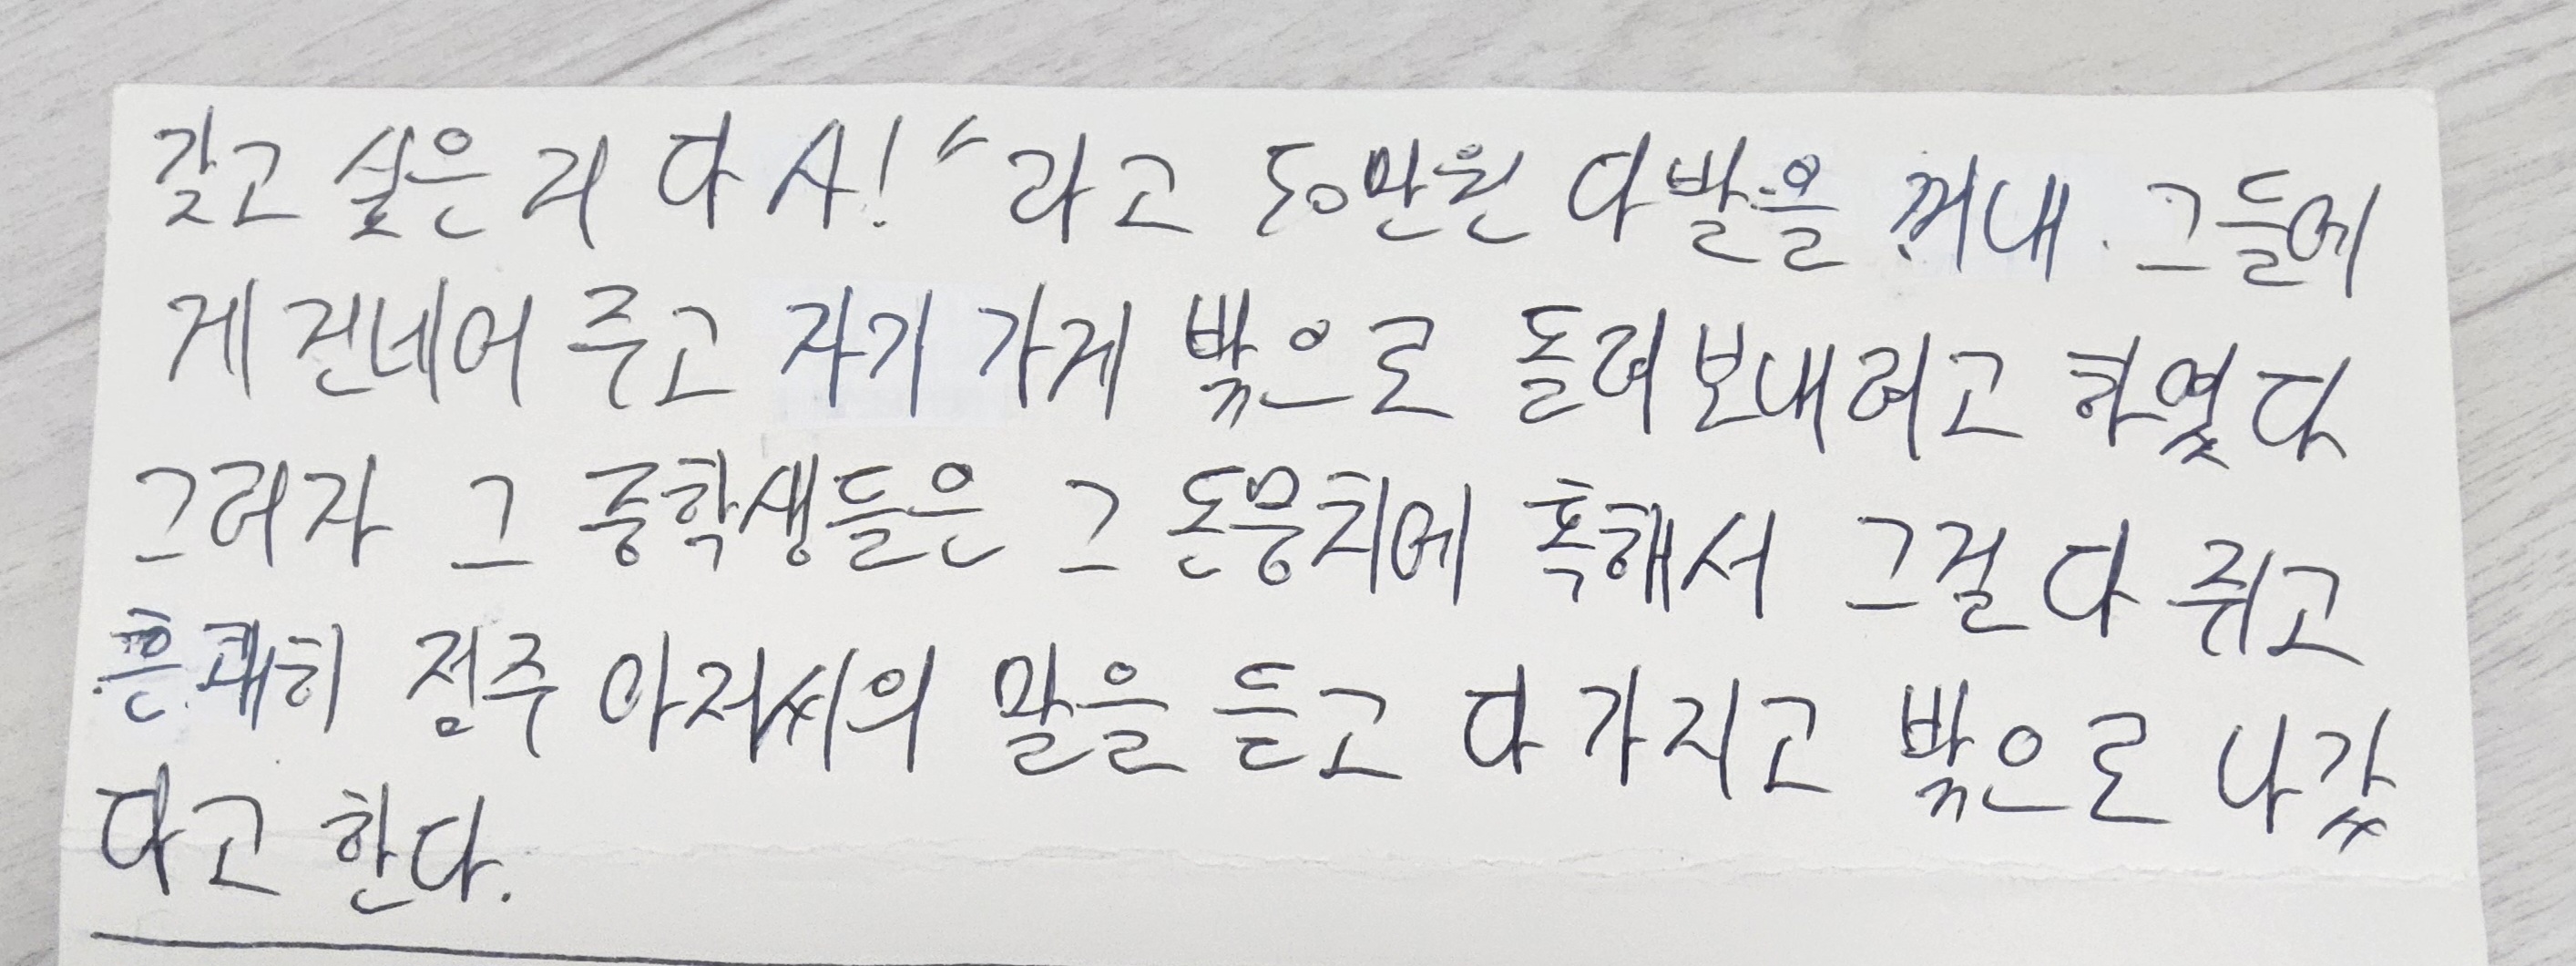 갖고 싶은 거 다 사!" 라고 50만원 다발을 꺼내. 그들에
게 건네어 주고 자기 가게 밖으로 돌려보내려고 하였다
그러자 그 중학생들은 그 돈뭉치에 혹해서 그걸 다 쥐고
흔쾌히 점주 아저씨의 말을 듣고 다 가지고 밖으로 나갔
다고 한다.